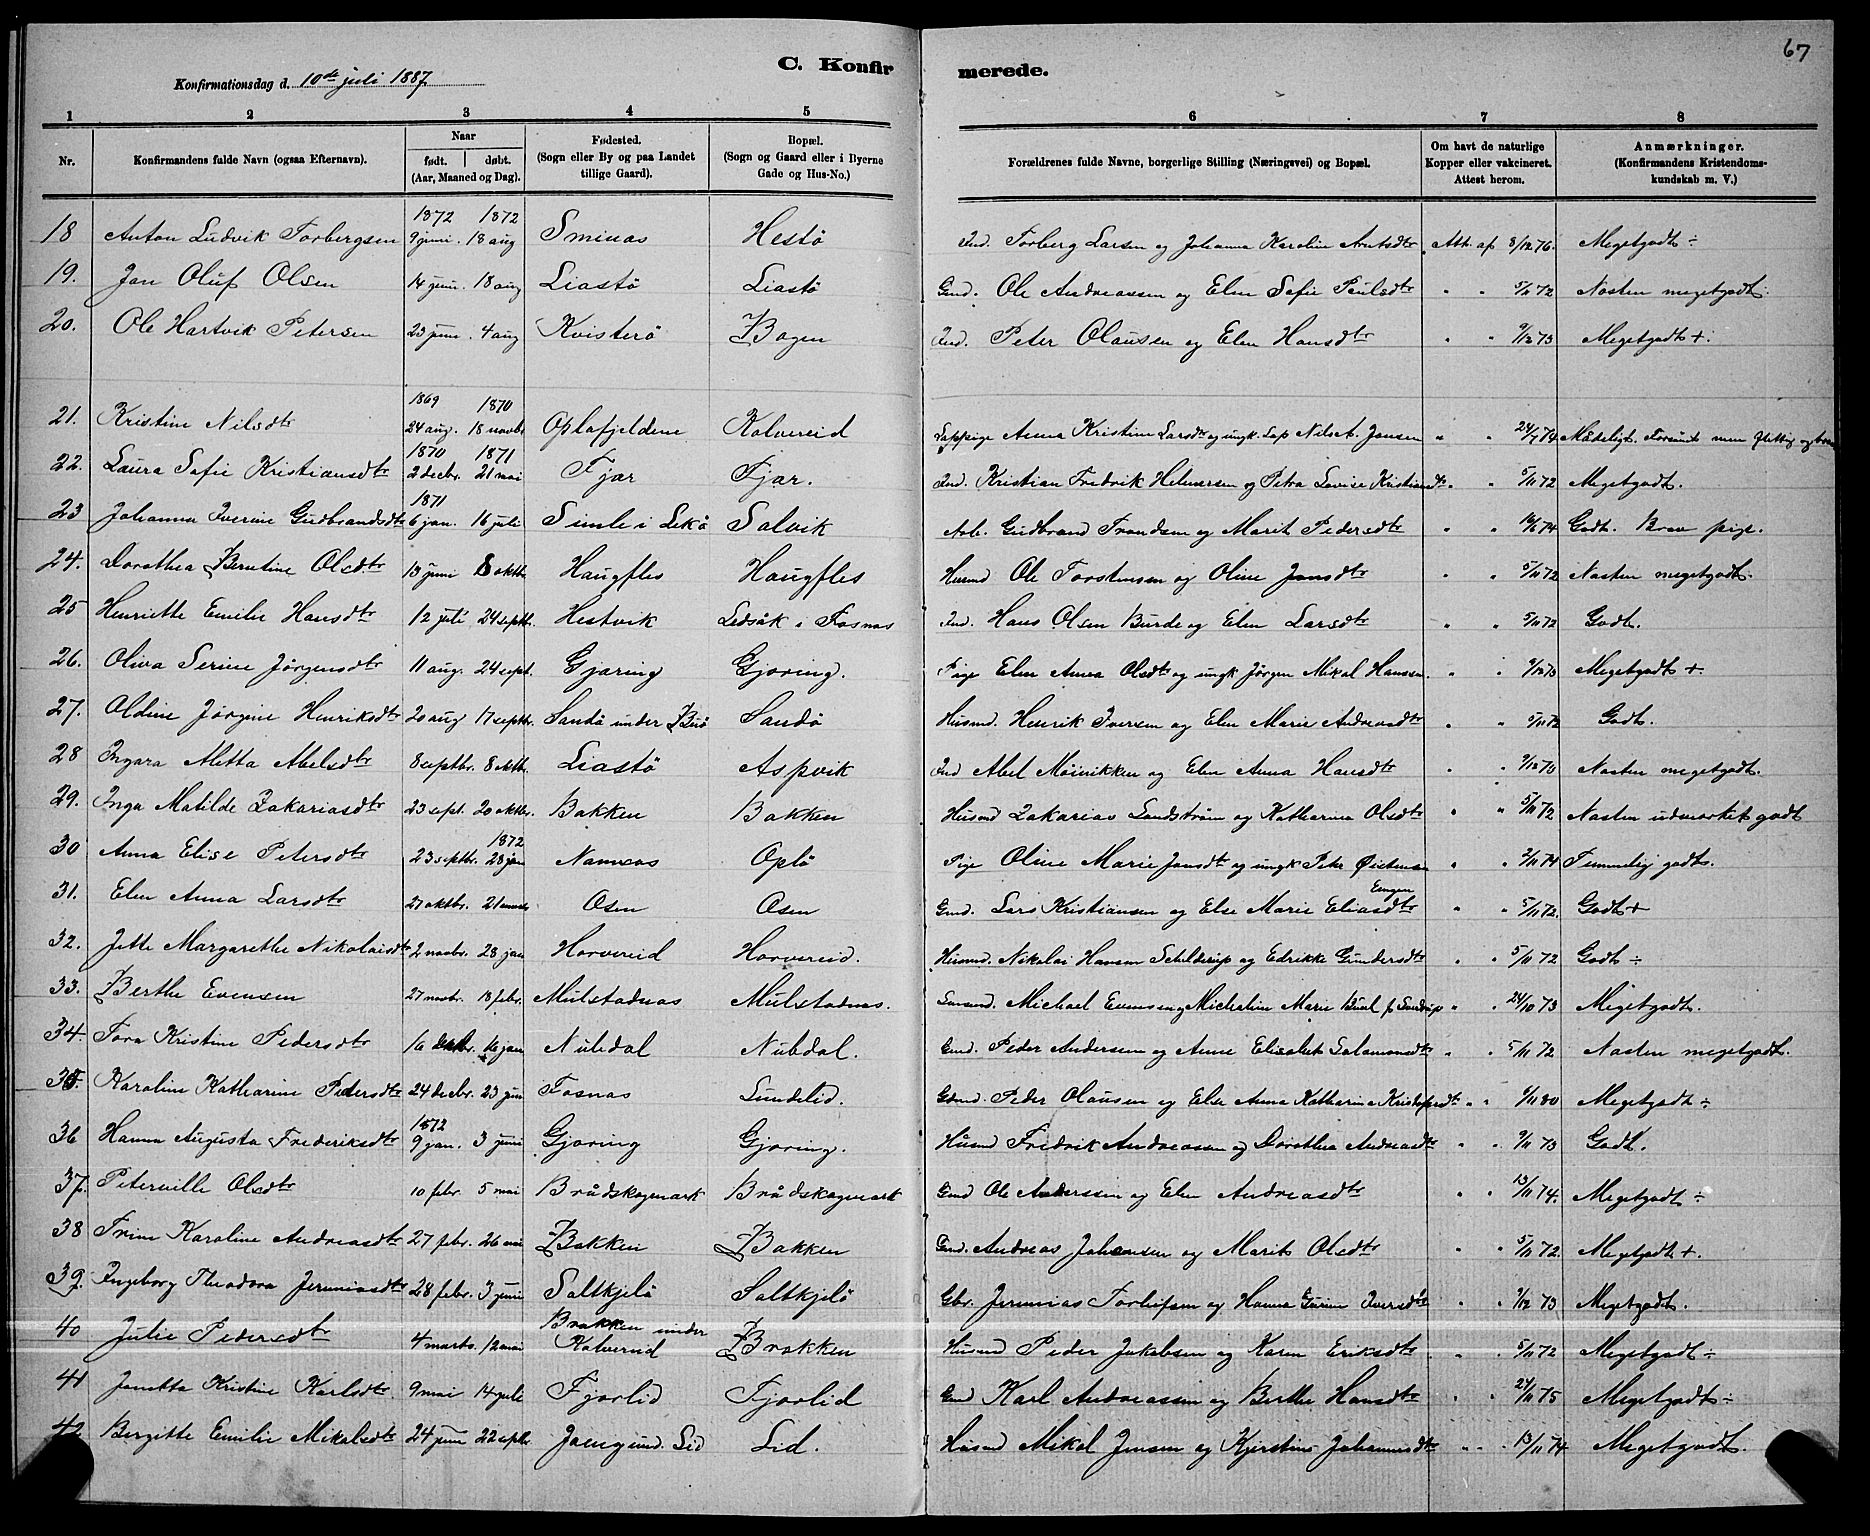 67
Konfirmationsdag d. 10de juli 1887.
C. Konfirmerede.
1 2 3 4 5 6 7 8
Nr. Konfirmandens fulde Navn (ogsaa Efternavn). Naar født. døbt. (Aar, Maaned og Dag). Fødested. (Sogn eller By og paa Landet tillige Gaard). Bopæl. (Sogn og Gaard eller i Byerne Gade og Hus-No.) Forældrenes fulde Navne, borgerlige Stilling (Næringsvei) og Bopæl. Om havt de naturlige Kopper eller vakcineret. Attest herom. Anmærkninger. (Konfirmandens Kristendomskundskab m. V.)
1872 1872
18 Anton Ludvik Torbergsen 9 juni. 18 aug Sminas Hestö Ind. Torberg Larsen og Johanna Karolin Arntsdtr Att. af 8/12 76. Megetgodt ÷
19. Jon Oluf Olsen 14 juni. 18 aug Liastö Liastö Gmd. Ole Andreassen og Elen Sofie Paulsdtr " " 5/11 72 Næsten megetgodt.
20. Ole Hartvik Petersen 23 juni. 4 aug Kvisterö Bogen Ind. Peter Olausen og Elen Hansdtr " " 9/12 73 Megetgodt +
1869 1870
21. Kristine Nilsdtr 24 aug. 18 novbr Oplöfjeldene Kolvereid Lappige Anna Kristine Larsdtr og ungk. Lap Nils A. Jonsen " " 24/7 74 Mådeligt. Forsømt men flittig og
1870 1871
22. Laura Sofie Kristiansdtr 2 decbr. 21 mai Fjær Fjær. Ind. Kristian Fredrik Helmersen og Petra Lovise Kristiansdtr " " 5/11 72 Megetgodt.
1871
23 Johanna Iverine Gudbrandsdtr 6 jan. 16 juli Simle i Lekö Salvik Arb. Gudbrand Trondsen og Marit Pedersdtr " " 74 Godt. Brav pige.
24. Dorothea Berntine Olsdtr 13 juni 8 oktbr. Haugfles Haugfles Husmd Ole Torstensen og Oline Jonsdtr " " 5/11 72 Næsten megetgodt.
25 Henriette Emilie Hansdtr 12 juli 24 septbr. Hestvik Ledsåk i Fosnæs Ind. Hans Olsen Burde og Elen Larsdtr " " 5/11 72 Godt.
26. Oliva Serine Jörgensdtr 11 aug. 24 sept. Gjæring Gjæring. Pige Elen Anna Olsdtr og ungk Jörgen Mikal Hanssen. " " 9/12 73 Megetgodt +
27. Oldine Jörgine Henriksdtr 20 aug 17 septbr. Sandö under Burö Sandö Husmd. Henrik Iversen og Elen Marie Andreasdtr " " 5/11 72 Godt.
28 Ingara Aletta Abelsdtr 8 septbr. 8 oktbr. Liastö Aspvik Ind Abel Möinikken og Elen Anna Hansdtr " " 9/12 73 Næsten megetgodt.
29. Inga Matilde Zakariasdtr 23 sept. 20 oktbr. Bakken Bakken Husmd Zakarias Landström og Katharina Olsdtr " " 5/11 72 Næsten udmærket godt
1872
30 Anna Elise Petersdtr 23 septbr. 28 jan Namnæs Oplö Pige Oline Marie Jonsdtr og ungk Petr Øistensen " " 2/11 74 Temmelig godt.
31. Elen Anna Larsdtr 27 oktbr. 21 Osen Osen Gmd. Lars Kristiansen og Else Marie Eliasdtr " " 5/11 72. Godt +
32. Jette Margarethe Nikolaisdtr 2 novbr. 28 jan Horvereid Horvereid. Husmd. Nikolai Hansen Schilderup og Edrikke Gundersdtr " " 5/11 72 Godt ÷
33. Berthe Evensen 27 novbr. 18 febr. Mulstadnæs Mulstadnæs. Michael Evensen og Michaline Marie " " 24/10 73 Megetgodt.
34. Tora Kristine Pedersdtr 16 16 jan. Nubdal Nubdal. Gmd. Peder Andersen og Anne Elisabet Salamonsdtr " " 5/11 72 Næsten megetgodt.
35. Karoline Katharine Pedersdtr 24 decbr. 23 jun Fosnæs Lundelid. Gmd. Peder Olausen og Else Anna Katharina Kristofersdtr " " 6/11 80 Megetgodt ÷
1872
36 Hanna Augusta Frederiksdtr 9 jan. 3 juni Gjæring Gjæring. Husmd Fredrik Andreassen og Dorothea Andreasdtr " " 9/11 73 Godt.
37. Peterville Olsdtr 10 febr. 5 mai Brådskogmark Brådskogmark Gmd Ole Anderssen og Elen Andreasdtr " " 13/11 74. Megetgodt ÷
38 Trine Karoline Andreasdtr 27 febr. 26 mai Bakken Bakken Gmd. Andreas Johansen og Marit Olsdtr " " 5/11 72. Megetgodt +.
39. Ingeborg Theodora Jeremiasdtr 28 febr. 3 juni Saltkjelö Saltkjelö Gbr. Jeremias Torleifsen og Hanna Gurine Iversdtr " " 9/12 73 Megetgodt.
40 Julie Pedersdtr 4 marts. 12 mai Brakken under Kolvereid Brakken Husmd Peder Jakobsen og Karen Eriksdtr " " 5/11 72 Megetgodt ÷
41 Jonetta Kristine Karlsdtr 9 mai 14 juli Fjærlid Fjærlid Gmd Karl Andreassen og Berthe Hansdtr " " 24/11 75 Megetgodt ÷
42 Bergitte Emilie Mikalsdtr 24 juni 22 septbr und. Lid Lid. Husmd Mikal Jensen og Kjerstine Johannesdtr " " 13/11 74 Megetgodt.